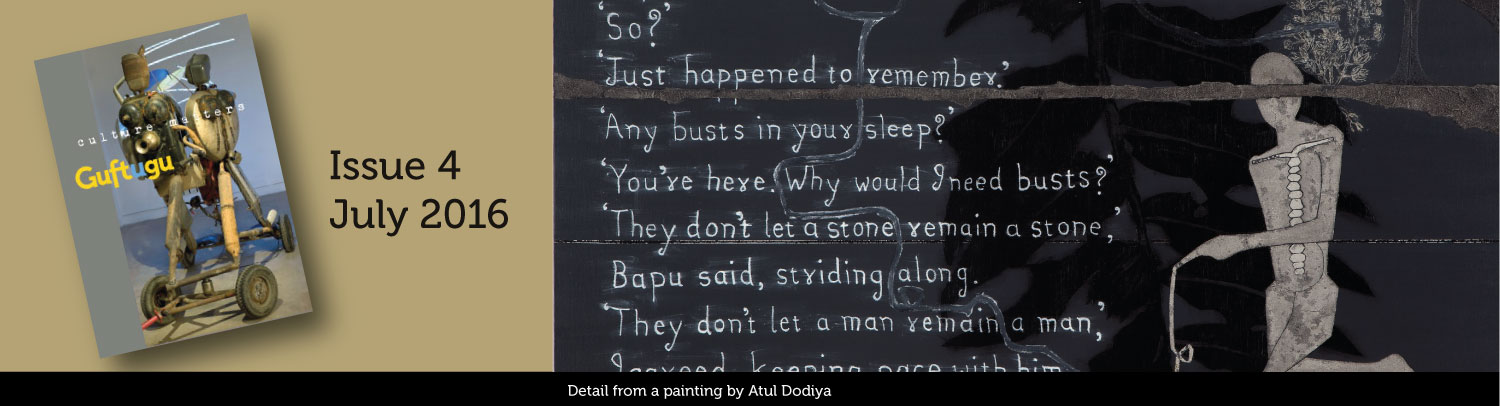 culture matters
Guftugu
Issue 4
July 2016
'So?'
'Just happened to remember.'
'Any busts in your sleep?'
'You're here. Why would I need busts?'
'They don't let a stone remain a stone,'
Bapu said, striding along.
'They don't let a man remain a man,'
I agreed, keeping pace with him
Detail from a painting by Atul Dodiya